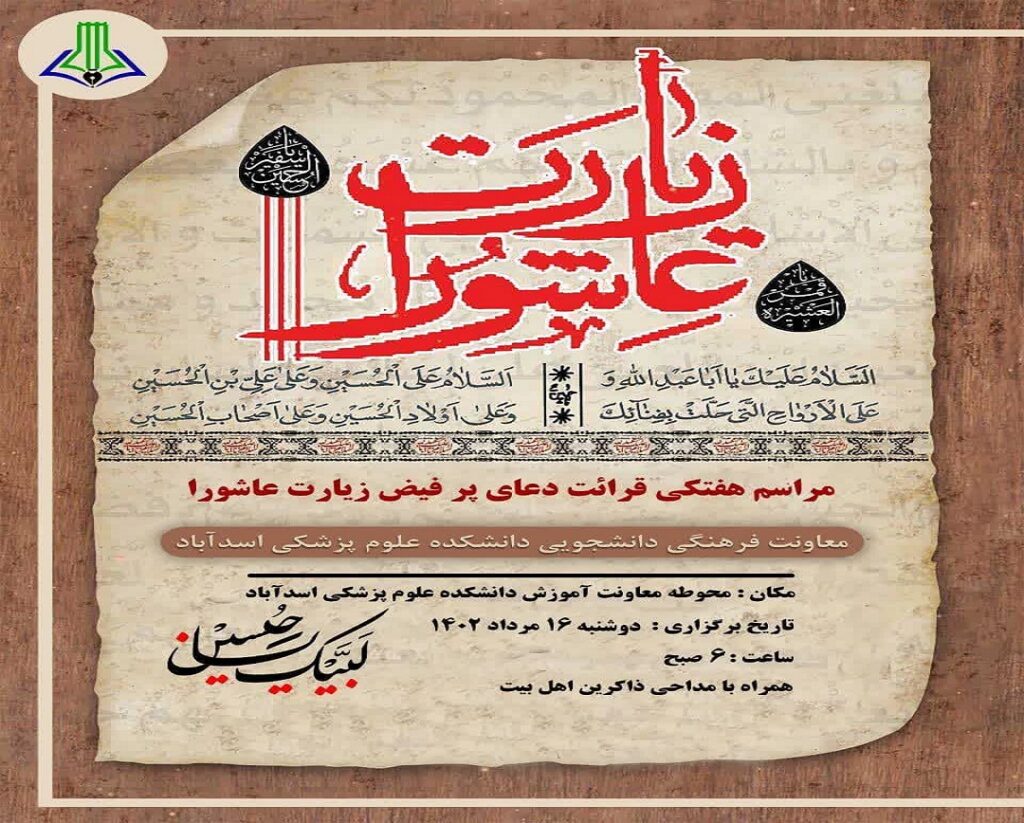 زیارت
عاشورا
یا سفیر الحسین
یا قمر العشیره
اَلسَّلامُ عَلَیْكَ یا اَبا عَبْدِ اللهِ وَ
عَلَی الْاَرْواحِ الَّتی حَلَّتْ بِفِنائِكَ
اَلسَّلامُ عَلَی الْحُسَیْنِ وَ عَلیٰ عَلِیِّ بْنِ الْحُسَیْنِ
وَ عَلیٰ اَوْلادِ الْحُسَیْنِ وَ عَلیٰ اَصْحابِ الْحُسَیْنِ
مراسم هفتگی قرائت دعای پر فیض زیارت عاشورا
معاونت فرهنگی دانشجویی دانشکده علوم پزشکی اسدآباد
مکان : محوطه معاونت آموزش دانشکده علوم پزشکی اسدآباد
تاریخ برگزاری : دوشنبه ۱۶ مرداد ۱۴۰۲
ساعت : ۶ صبح
همراه با مداحی ذاکرین اهل بیت
لبیک یا حسین